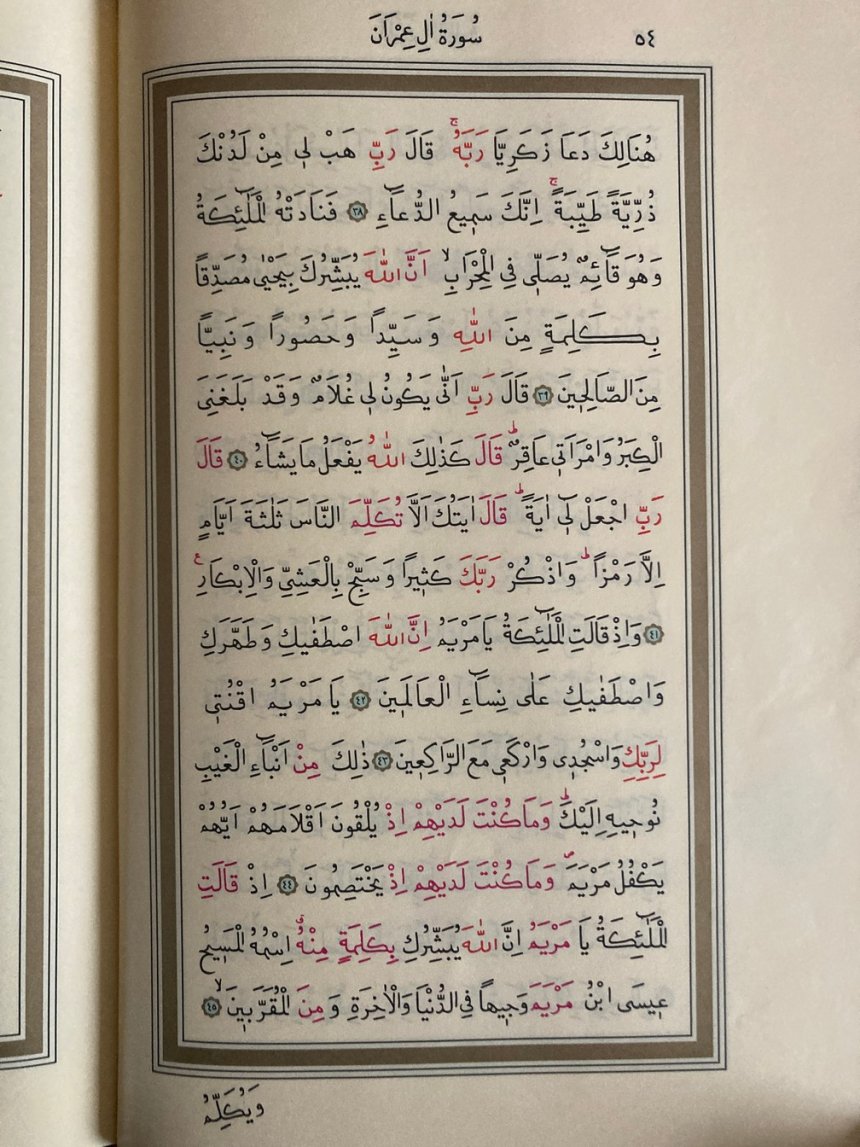 سُورَةُ اٰلِ عِمْرَانَ ٥٤
هُنَالِكَ دَعَا زَكَرِيَّا رَبَّهُۚ قَالَ رَبِّ هَبْ ل۪ي مِنْ لَدُنْكَ
ذُرِّيَّةً طَيِّبَةًۚ اِنَّكَ سَم۪يعُ الدُّعَٓاءِ ﴿٣٨﴾ فَنَادَتْهُ الْمَلٰٓئِكَةُ
وَهُوَ قَٓائِمٌ يُصَلّ۪ي فِي الْمِحْرَابِۙ اَنَّ اللّٰهَ يُبَشِّرُكَ بِيَحْيٰى مُصَدِّقاً
بِكَلِمَةٍ مِنَ اللّٰهِ وَسَيِّداً وَحَصُوراً وَنَبِيًّا
مِنَ الصَّالِح۪ينَ ﴿٣٩﴾ قَالَ رَبِّ اَنّٰى يَكُونُ ل۪ي غُلَامٌ وَقَدْ بَلَغَنِيَ
الْكِبَرُ وَامْرَاَت۪ي عَاقِرٌۜ قَالَ كَذٰلِكَ اللّٰهُ يَفْعَلُ مَا يَشَٓاءُ ﴿٤٠﴾ قَالَ
رَبِّ اجْعَلْ ل۪ٓي اٰيَةًۜ قَالَ اٰيَتُكَ اَلَّا تُكَلِّمَ النَّاسَ ثَلٰثَةَ اَيَّامٍ
اِلَّا رَمْزاًۜ وَاذْكُرْ رَبَّكَ كَث۪يراً وَسَبِّحْ بِالْعَشِيِّ وَالْاِبْكَارِ۟
﴿٤١﴾ وَاِذْ قَالَتِ الْمَلٰٓئِكَةُ يَا مَرْيَمُ اِنَّ اللّٰهَ اصْطَفٰيكِ وَطَهَّرَكِ
وَاصْطَفٰيكِ عَلٰى نِسَٓاءِ الْعَالَم۪ينَ ﴿٤٢﴾ يَا مَرْيَمُ اقْنُت۪ي
لِرَبِّكِ وَاسْجُد۪ي وَارْكَع۪ي مَعَ الرَّاكِع۪ينَ ﴿٤٣﴾ ذٰلِكَ مِنْ اَنْبَٓاءِ الْغَيْبِ
نُوح۪يهِ اِلَيْكَۜ وَمَا كُنْتَ لَدَيْهِمْ اِذْ يُلْقُونَ اَقْلَامَهُمْ اَيُّهُمْ
يَكْفُلُ مَرْيَمَۖ وَمَا كُنْتَ لَدَيْهِمْ اِذْ يَخْتَصِمُونَ ﴿٤٤﴾ اِذْ قَالَتِ
الْمَلٰٓئِكَةُ يَا مَرْيَمُ اِنَّ اللّٰهَ يُبَشِّرُكِ بِكَلِمَةٍ مِنْهُۗ اِسْمُهُ الْمَس۪يحُ
ع۪يسَى ابْنُ مَرْيَمَ وَج۪يهاً فِي الدُّنْيَا وَالْاٰخِرَةِ وَمِنَ الْمُقَرَّب۪ينَۙ ﴿٤٥﴾
وَيُكَلِّمُ